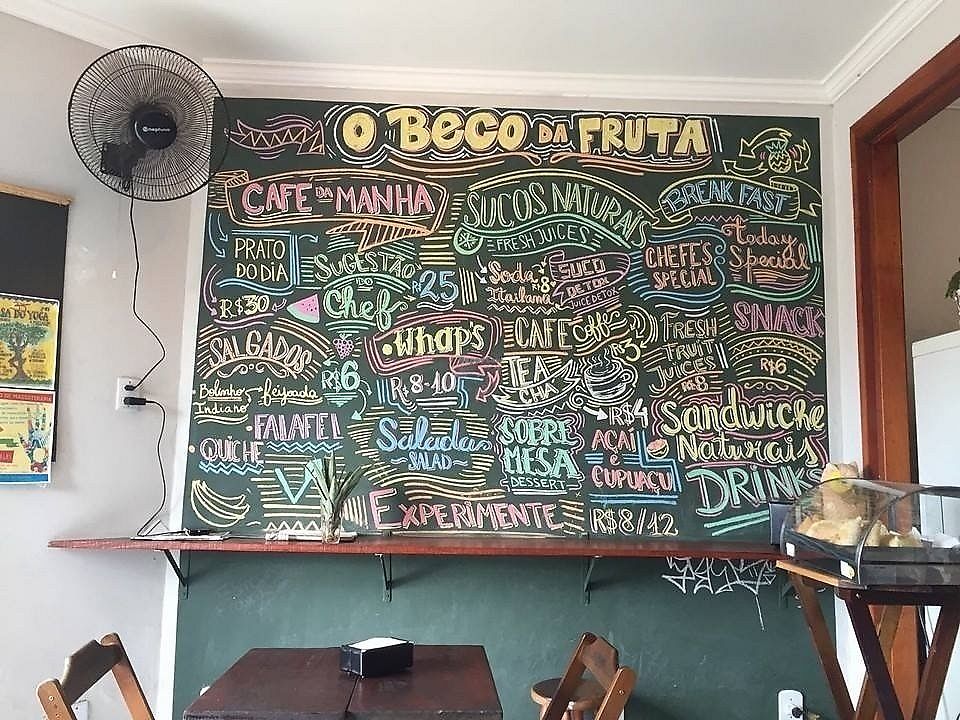 neptune
O BECO DA FRUTA
CAFÉ DA MANHA
SUCOS NATURAIS
FRESH JUICES
BREAK FAST
PRATO
DO DIA
R$30
SUGESTÃO
DO
Chef
R$25
Soda R$8
Itailana
SUCO
DETOX
JUICE DETOX
CHEFE'S
SPECIAL
today
Special
SALGADOS
R$6
Bolinho feijoada
Indiano
WHAP'S
R$8-10
CAFE Coffe
R$3
TEA
CHA
R$4
FRESH
FRUIT
JUICES
R$8
SNACK
R$6
FALAFEL
QUICHE
V
Salada
SALAD
SOBRE
MESA
DESSERT
AÇAI
E
CUPUAÇU
R$8/12
SANDWICHE
NATURAIS
DRINKS
EXPERIMENTE
SA DO YOGA
DE MASSOTERAPIA